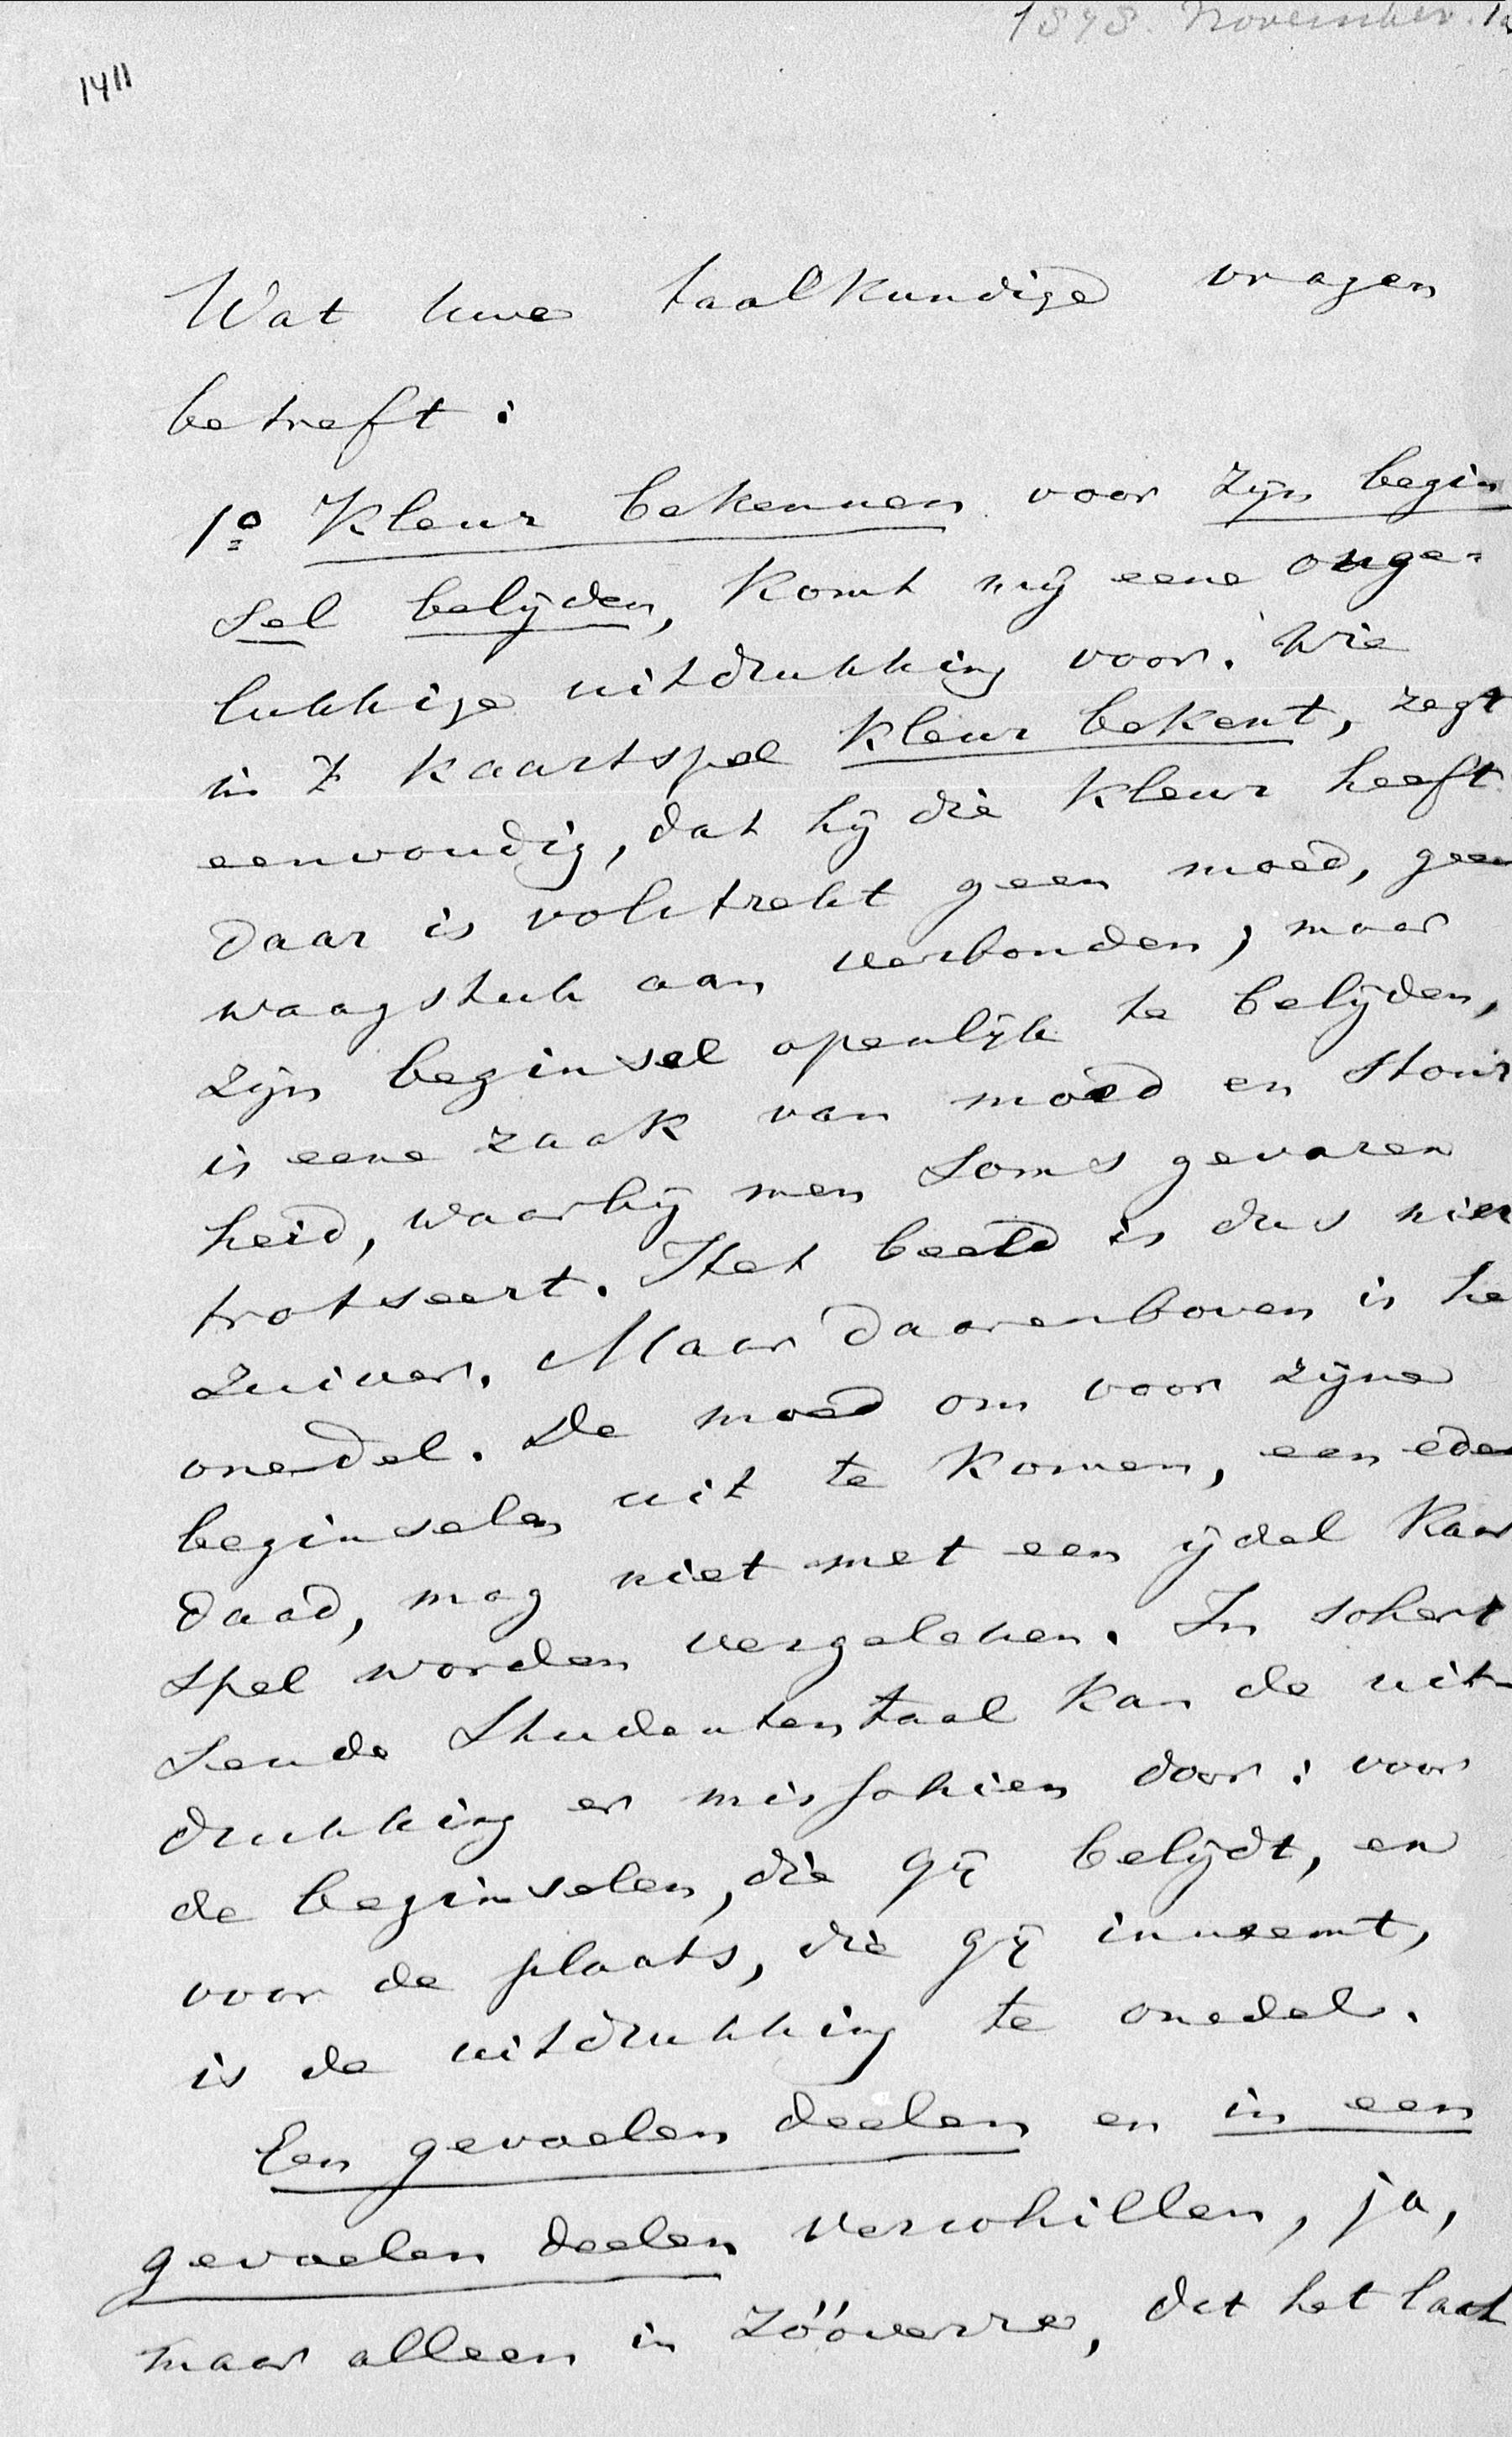 1878. November. 1
1411
Wat uwe taalkundige vragen
betreft:
1º Kleur bekennen voor zijn begin
sel belijden, komt mij eene onge-
lukkige uitdrukking voor. Wie
in 't kaartspel kleur bekent, zegt
eenvoudig, dat hij die kleur heeft
daar is volstrekt geen moed, geen
waagstuk aan verbonden, maar
zijn beginsel openlijk te belijden,
is eene zaak van moed en stout
heid, waarbij men soms gevaren
trotseert. Het beeld is dus niet
zuiver. Maar daarenboven is he
onedel. De moed om voor zijne
beginselen uit te komen, een edel
daad, mag niet met een ijdel kaar
spel worden vergeleken. In schert
sende Studententaal kan de uit-
drukking er misschien door: voor
de beginselen, die gij belijdt, en
voor de plaats, die gij inneemt,
is de uitdrukking te onedel.
Een gevoelen deelen en in een
gevoelen deelen verschillen, ja,
maar alleen in zóóverre, dat het laat